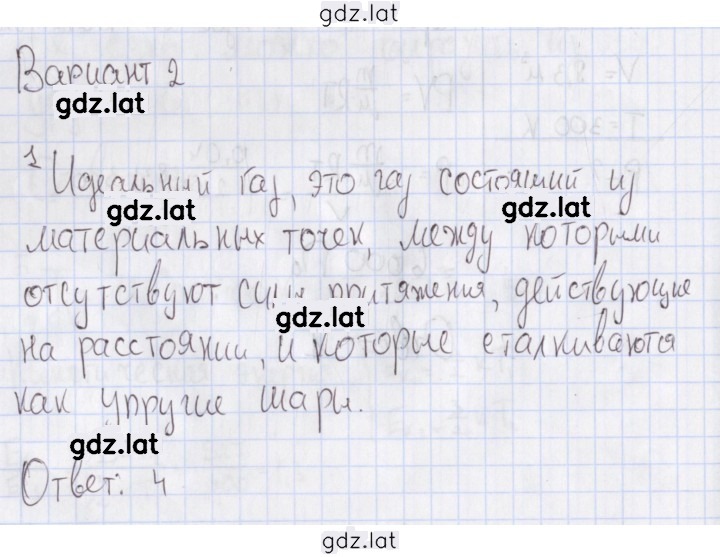 gdz.lat
Вариант 2
gdz.lat
1 Идеальный газ, это газ состоящий из
gdz.lat gdz.lat
материальных точек, между которыми
отсутствуют силы притяжения, действующие
gdz.lat
на расстоянии, и которые сталкиваются
как упругие шары.
gdz.lat
Ответ: 4
gdz.lat